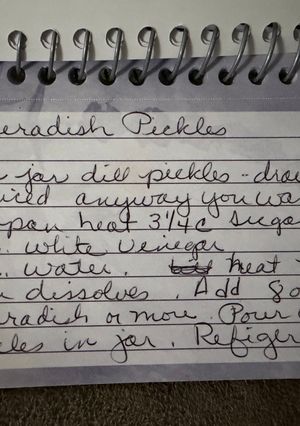 eradish Pickles
jar dill pickles - drai
iced anyway you wa
pan heat 3 1/4 c suga
. white vinegar
. water. heat
dissolves. Add 8 o
radish or more. Pour
les in jar. Refiger